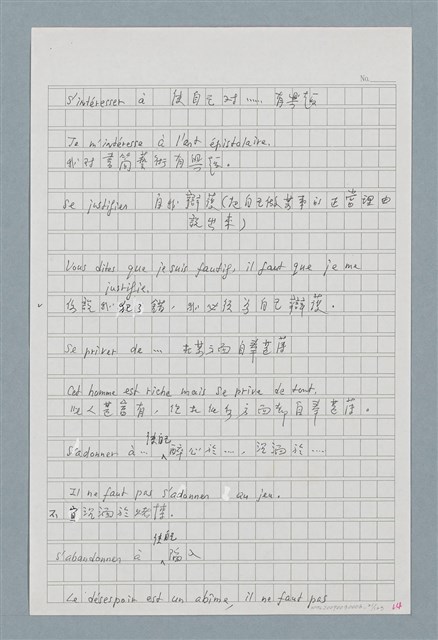 No.
S'intéresser à 使自己对..... 有興趣
Je m'intéresse à l'art épistolaire.
我对書简藝術有興趣。
Se justifier 自我辯護(把自己做某事的正當理由
說出來)
Vous dites que je suis fautif, il faut que je me
justifie.
你說我犯了錯，我必須為自己辯護。
Se priver de ... 在某方面自奉甚薄
Cet homme est riche mais se prive de tout.
此人甚富有，但在各方面都自奉甚薄。
S'adonner à ... 使自己醉心於...，沉湎於...
Il ne faut pas s'adonner au jeu.
不宜沉湎於賭博。
S'abandonner à 使自己陷入
Le désespoir est un abîme, il ne faut pas